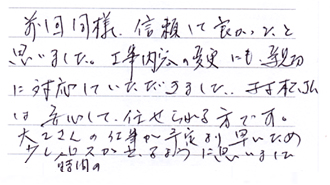 前回同様、信頼して良かったと
思いました。工事内容の変更にも、親切
に対応していただきました。
は安心して、任せられる方です。
大工さんの仕事が予定より早いため
少しロスが出るように思いました
時間の